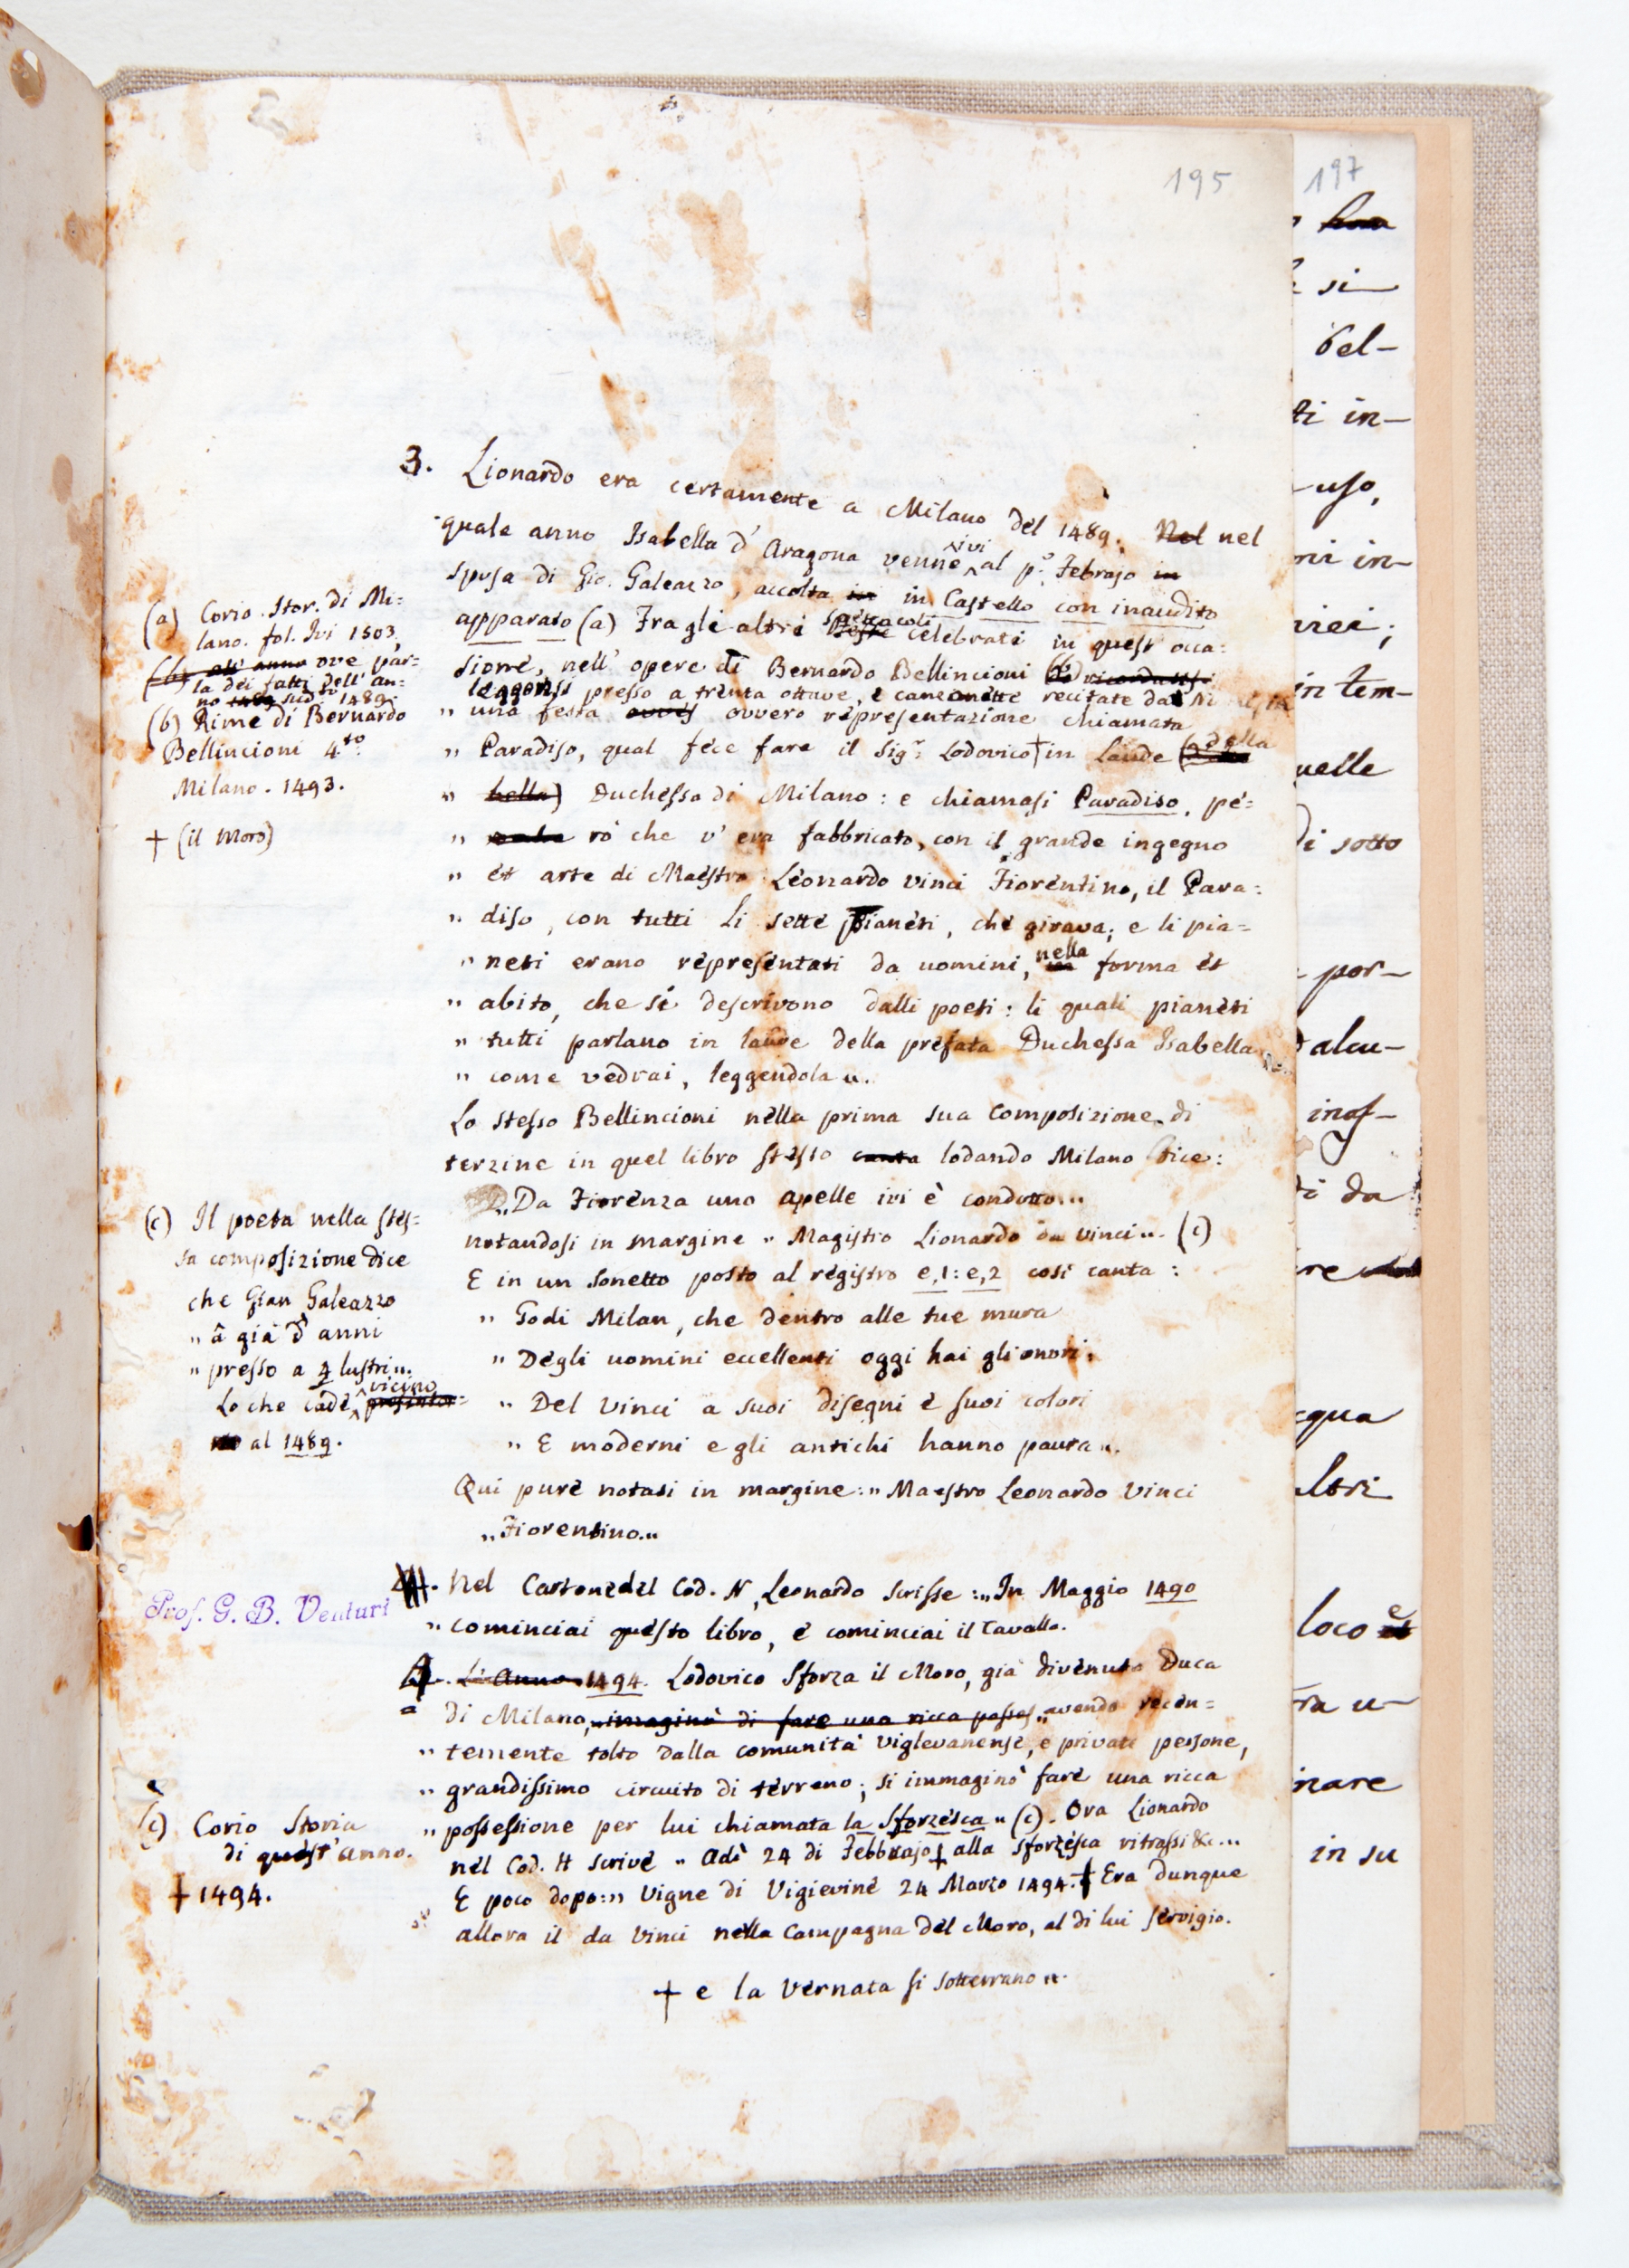 195
3. Lionardo era certamente a Milano del 1489. Nel nel
quale anno Isabella d'Aragona venne ivi al p.º Febrajo in
sposa di Gio. Galeazzo, accolta in in Castello con inaudito
apparato (a) Fra gli altri feste spettacoli celebrati in quest' occa=
sione, nell' opere di Bernardo Bellincioni (b)
leggonsi presso a trenta ottave, e canzonette recitate da
" una festa ovvero representazione chiamata
" Paradiso, qual fece fare il Sig.r Lodovico † in laude della
" bella) Duchessa di Milano: e chiamasi Paradiso, pe=
" rò che v' era fabbricato, con il grande ingegno
" et arte di Maestro Leonardo Vinci Fiorentino, il Para=
" diso, con tutti li sette pianeti, che girava; e li pia=
" neti erano representati da uomini, in nella forma et
" abito, che si descrivono dalli poeti: li quali pianeti
" tutti parlano in laude della prefata Duchessa Isabella
" come vedrai, leggendola ".
Lo stesso Bellincioni nella prima sua composizione di
terzine in quel libro stesso canta lodando Milano dice:
" Da Fiorenza uno apelle ivi è condotto "
notandosi in margine " Magistro Lionardo da Vinci ". (c)
E in un Sonetto posto al registro e,1: e,2 così canta:
" Godi Milan, che dentro alle tue mura
" Degli uomini eccellenti oggi hai gli onori,
" Del Vinci a suoi disegni e suoi colori
" E moderni e gli antichi hanno paura ".
Qui pure notasi in margine: " Maestro Leonardo Vinci
" Fiorentino. "
Nel Cartone del Cod. N, Leonardo scrisse: " In Maggio 1490
" cominciai questo libro, e cominciai il Cavallo.
4. L'Anno 1494. Lodovico Sforza il Moro, già divenuto Duca
di Milano, immaginò di fare una ricca posses " avendo recen=
" temente tolto dalla comunità Viglevanense, e private persone,
" grandissimo circuito di terreno; si immaginò fare una ricca
" possessione per lui chiamata la Sforzesca " (c). Ora Lionardo
nel Cod. H scrive " Adì 24 di Febbrajo † alla Sforzesca ritrassi &c. "
E poco dopo: " Vigne di Vigievine 24 Marzo 1494. † Era dunque
allora il da Vinci nella Campagna del Moro, al di lui servigio.
† e la vernata si sotterrano ".
(a) Corio. Stor. di Mi=
lano. fol. Ivi 1503,
(b) all' anno ove par=
la dei fatti dell' an=
no 1489
(b) Rime di Bernardo
Bellincioni 4.to
Milano. 1493.
† (il Moro)
(c) Il poeta nella stes=
sa composizione dice
che Gian Galeazzo
" à già d' anni
" presso a 4 lustri ".
Lo che cade vicino
al 1489.
Prof. G. B. Venturi
(c) Corio Storia
di quest' anno.
† 1494.
197
si
del-
ti in-
-uso,
ni in-
in tem-
uelle
di sotto
- por-
alcu-
di da
re
cqua
ltri
loco e
ra u-
nare
in su